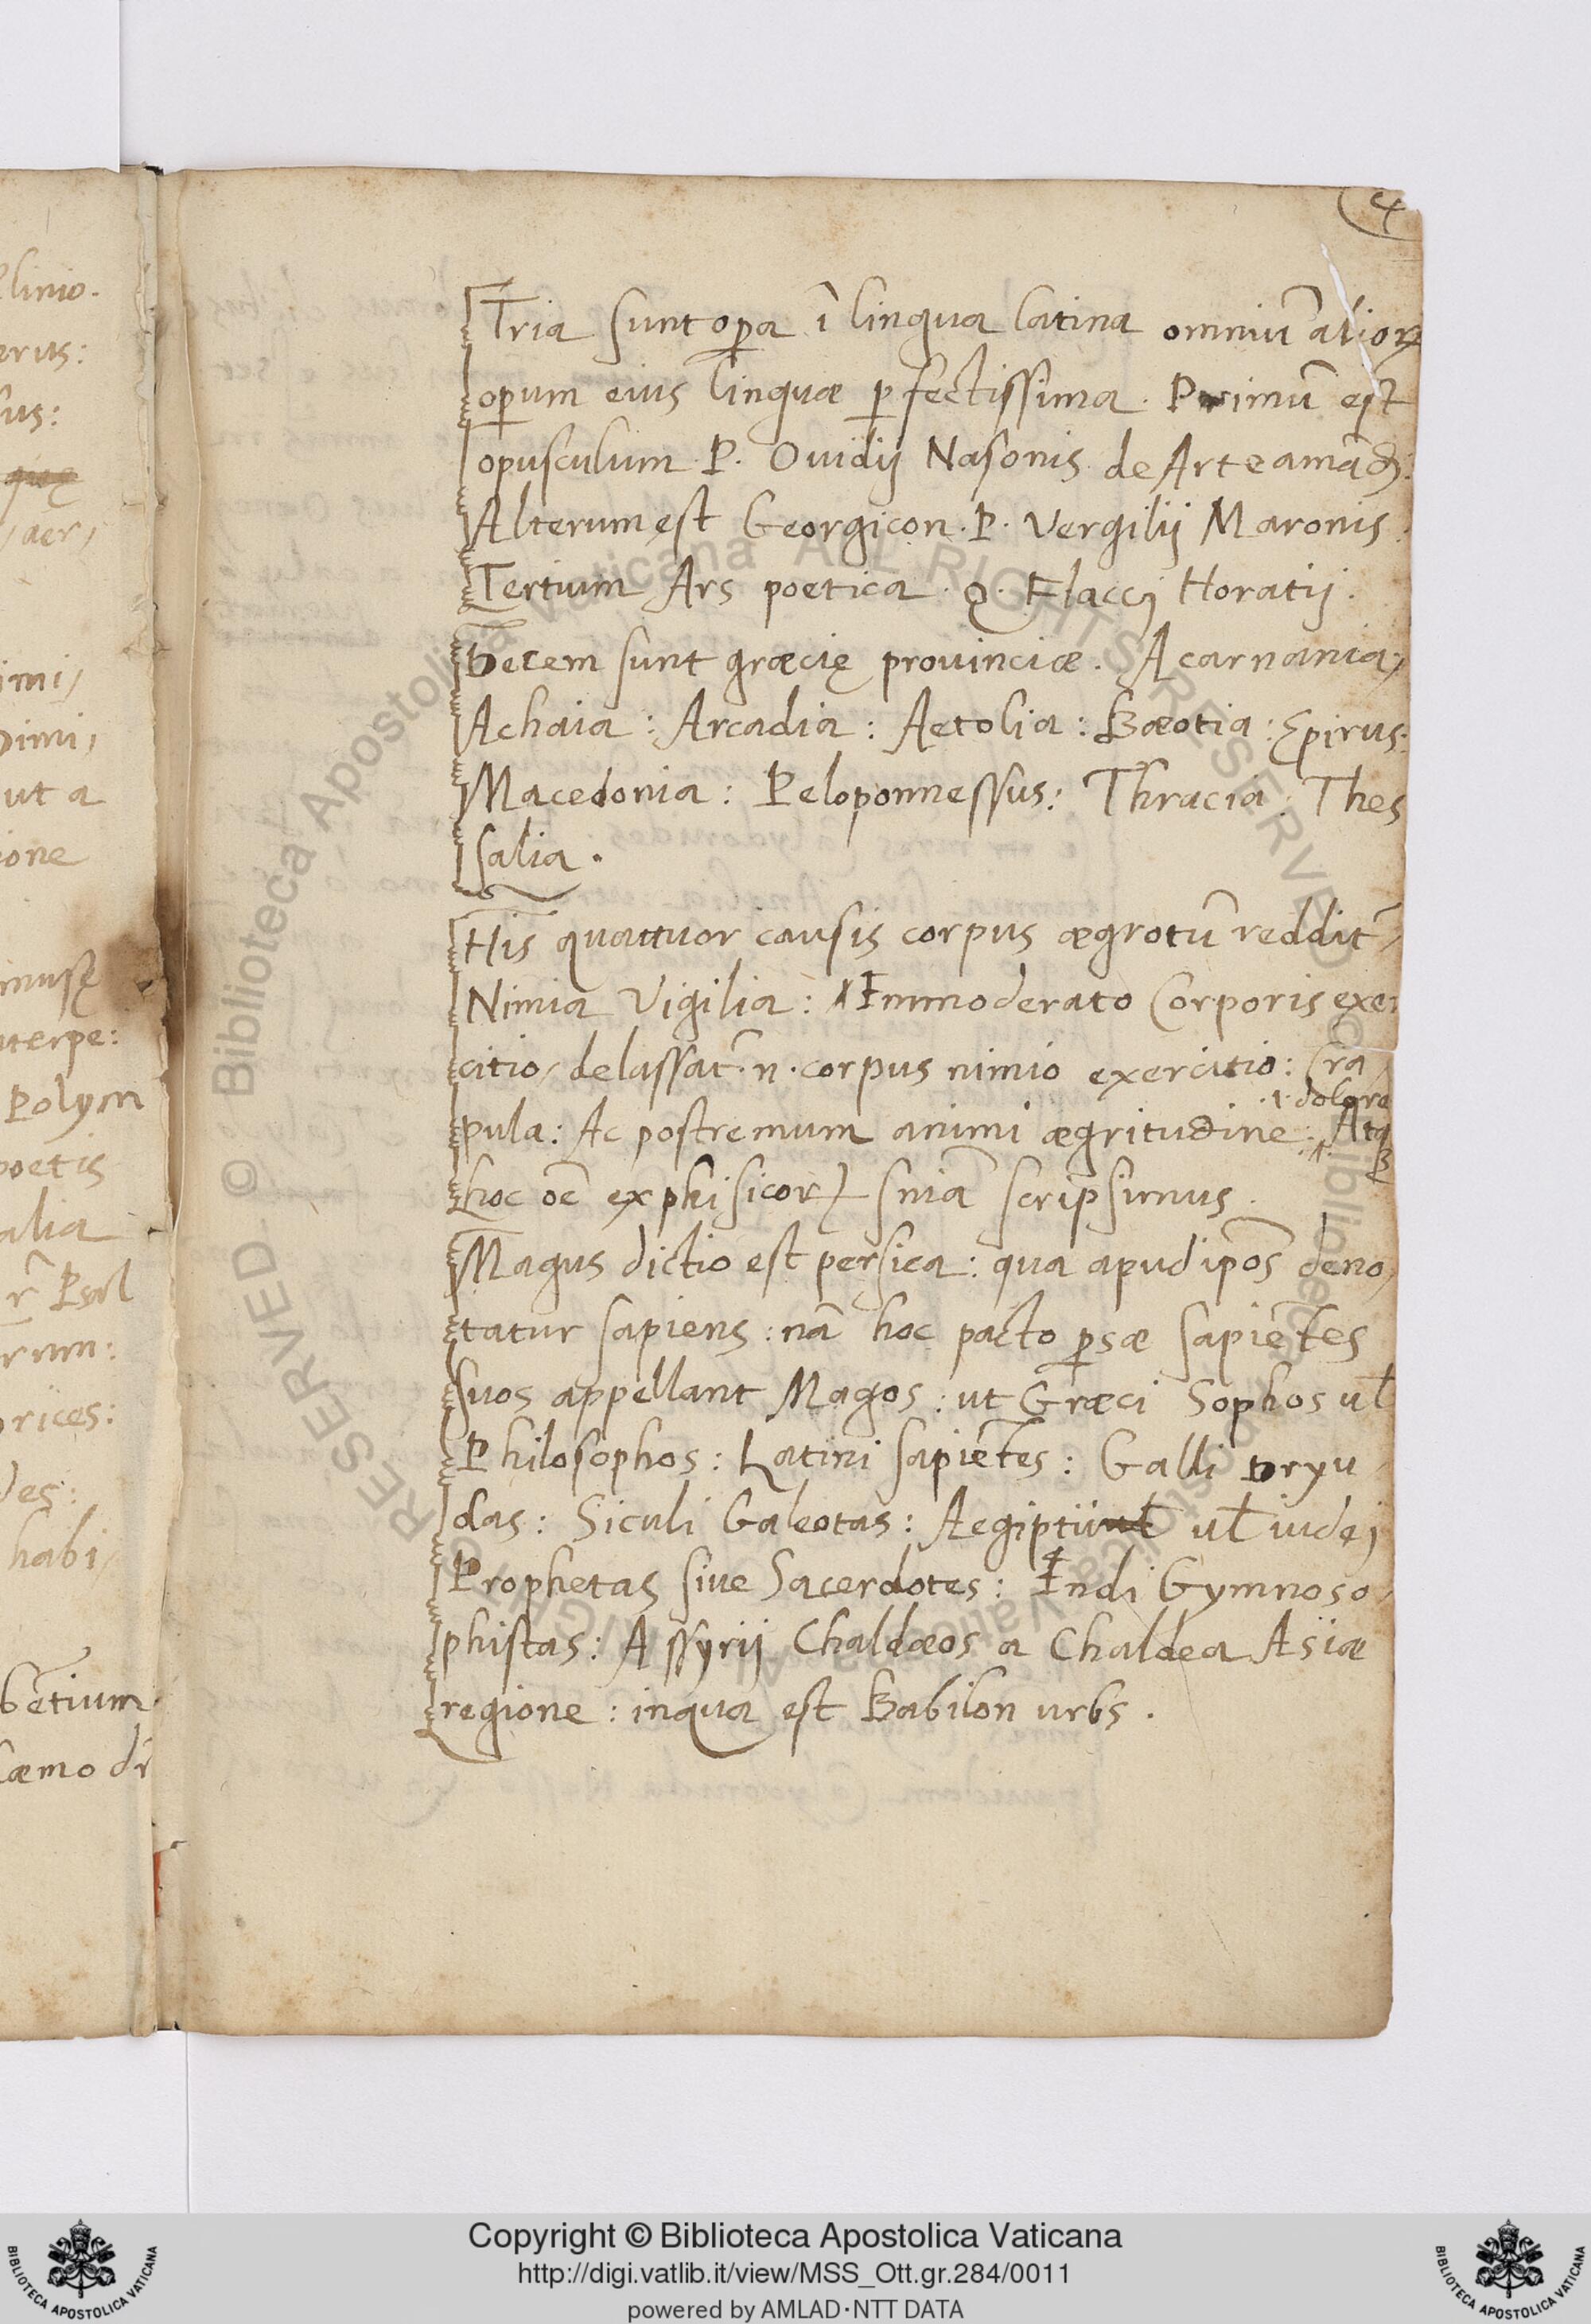 4
Tria sunt oꝑa ī lingua latina omniū alioꝝ
oꝑum eius linguæ ꝑfectissima. Primū est
opusculum P. Ouidij Nasonis de Arte amādi.
Alterum est Georgicon. P. Vergilij Maronis.
Tertium Ars poetica. Q. Flaccj Horatij.
Decem sunt græcię prouinciæ. Acarnania,
Achaia: Arcadia: Aetolia: Bæotia: Epirus:
Macedonia: Peloponnessus: Thracia: Thes
salia.
His quattuor causis corpus ægrotū reddit᷑,
Nimia Vigilia: Immoderato Corporis exer
citio, delassat᷑. n. corpus nimio exercitio: Cra,
.i. dolore
pula: Ac postremum animi ægritudine: Atqꝫ
hoc oē ex phisicoꝝ sn̄iā scripsimus.
Magus dictio est persica: qua apud ip̄os deno,
tatur sapiens: nā hoc pacto ꝑsæ sapiētes
suos appellant Magos: ut Græci Sophos ul̄
Philosophos: Latini sapiētes: Galli Dryu,
das: Siculi Galeotas: Aegiptij ul̄ iudej
Prophetas siue Sacerdotes: Indi Gymnoso,
phistas: Assyrij Chaldæos a Chaldea Asiæ
regione: in qua est Babilon urbs.
Plinio.
aer,
Dimi,
ut a
ione
musę
uterpe:
Polym
poetis
alia
rum:
habi,
bētium
Copyright © Biblioteca Apostolica Vaticana
http://digi.vatlib.it/view/MSS_Ott.gr.284/0011
powered by AMLAD·NTT DATA
BIBLIOTECA APOSTOLICA VATICANA
BIBLIOTECA APOSTOLICA VATICANA